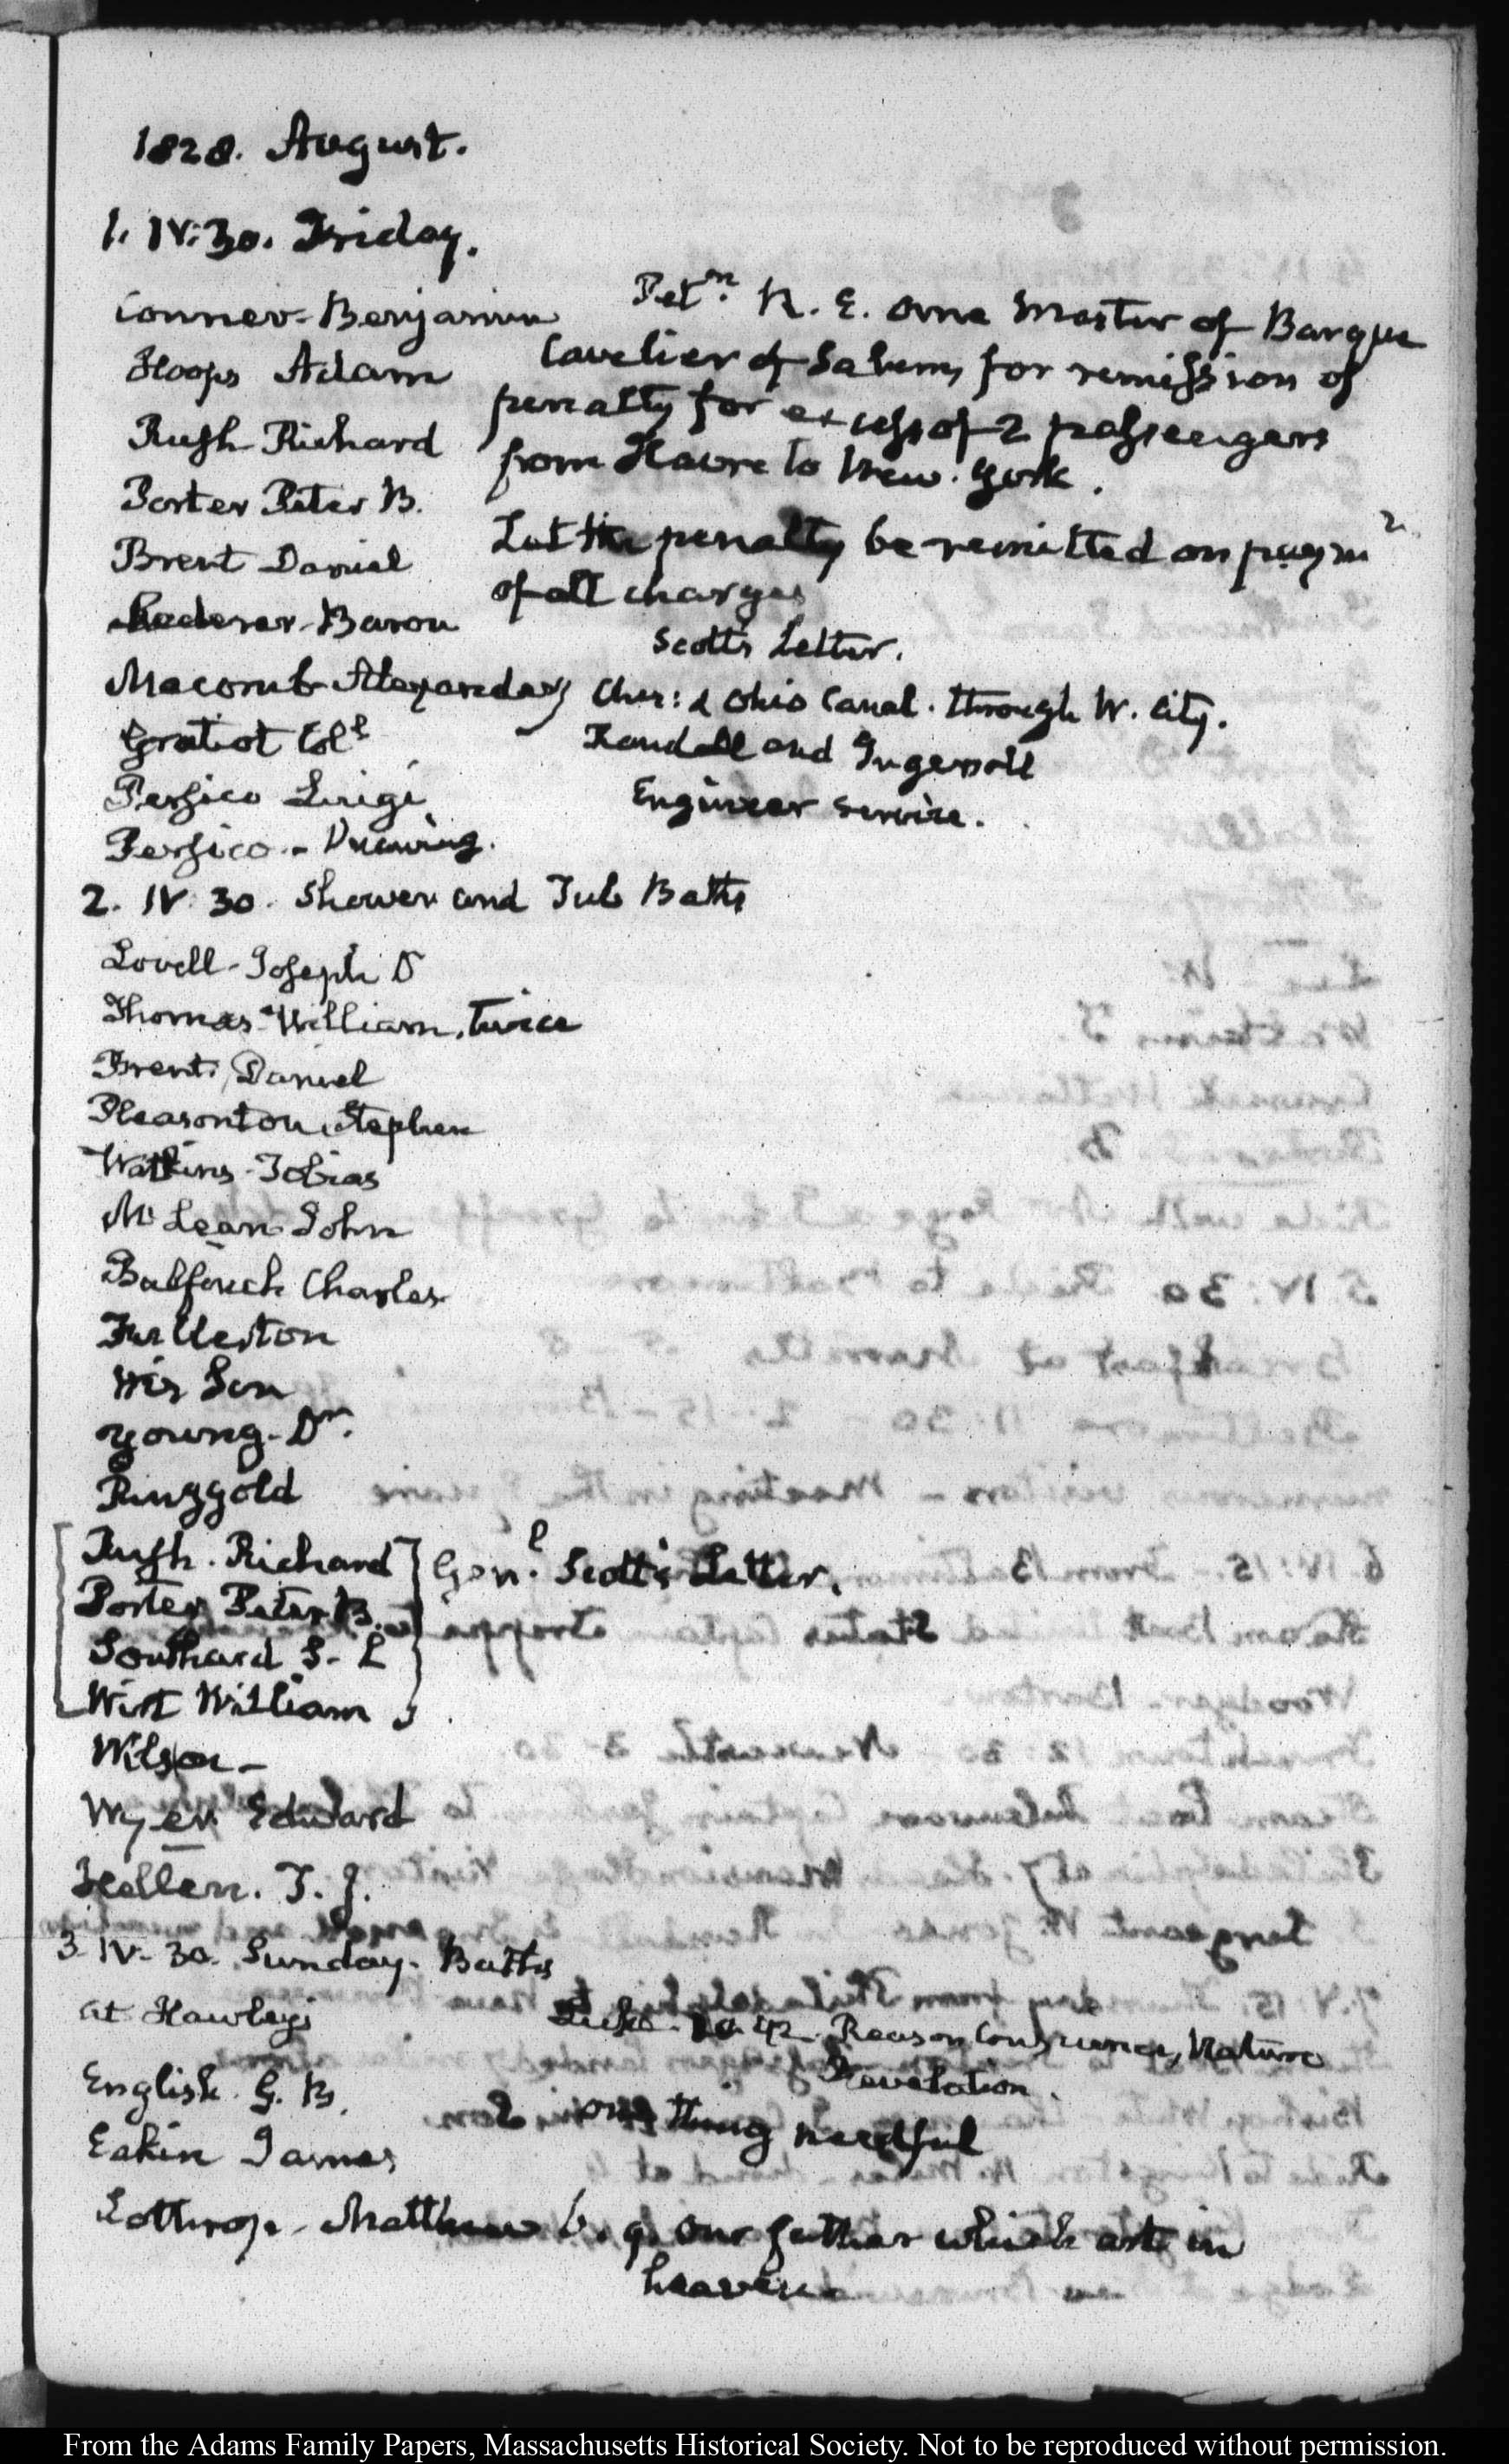 1828. August.
1. IV:30. Friday.
Conner- Benjamin
Hoops Adam
Rush- Richard
Porter Peter B.
Brent Daniel
Lederer- Baron
Macomb- Alexander
Gratiot Coll
Persico Luigi
Persico - Drawing.
Petn. R. E. Orne Master of Barque
Cavelier of Salem, for remission of
penalty for excess of 2 passengers
from Havre to New-York.
Let the penalty be remitted on paymt
of all charges
Scott's Letter.
Ches: & Ohio Canal. through W. City.
Randall and Ingersoll
Engineer service.
2. IV:30. Shower and Tub Baths
Lovell- Joseph D
Thomas- William, twice
Brent Daniel
Pleasonton Stephen
Watkins- Tobias
McLean John
Bulfinch Charles
Fullerton
His Son
Young- Dr.
Ringgold
Rush. Richard
Porter Peter B.
Southard S. L
Wirt William
Genl. Scott's Letter.
Wilson-
Wyer Edward
Hellen. T. J.
3 IV- 30. Sunday. Baths
at Hawley's
English G. B.
Eakin James
Lothrop- Matthew 6. 9. Our father which art in
heaven.
Luke 10. 42. Reason Conscience, Nature
Revelation.
one thing needful
From the Adams Family Papers, Massachusetts Historical Society. Not to be reproduced without permission.